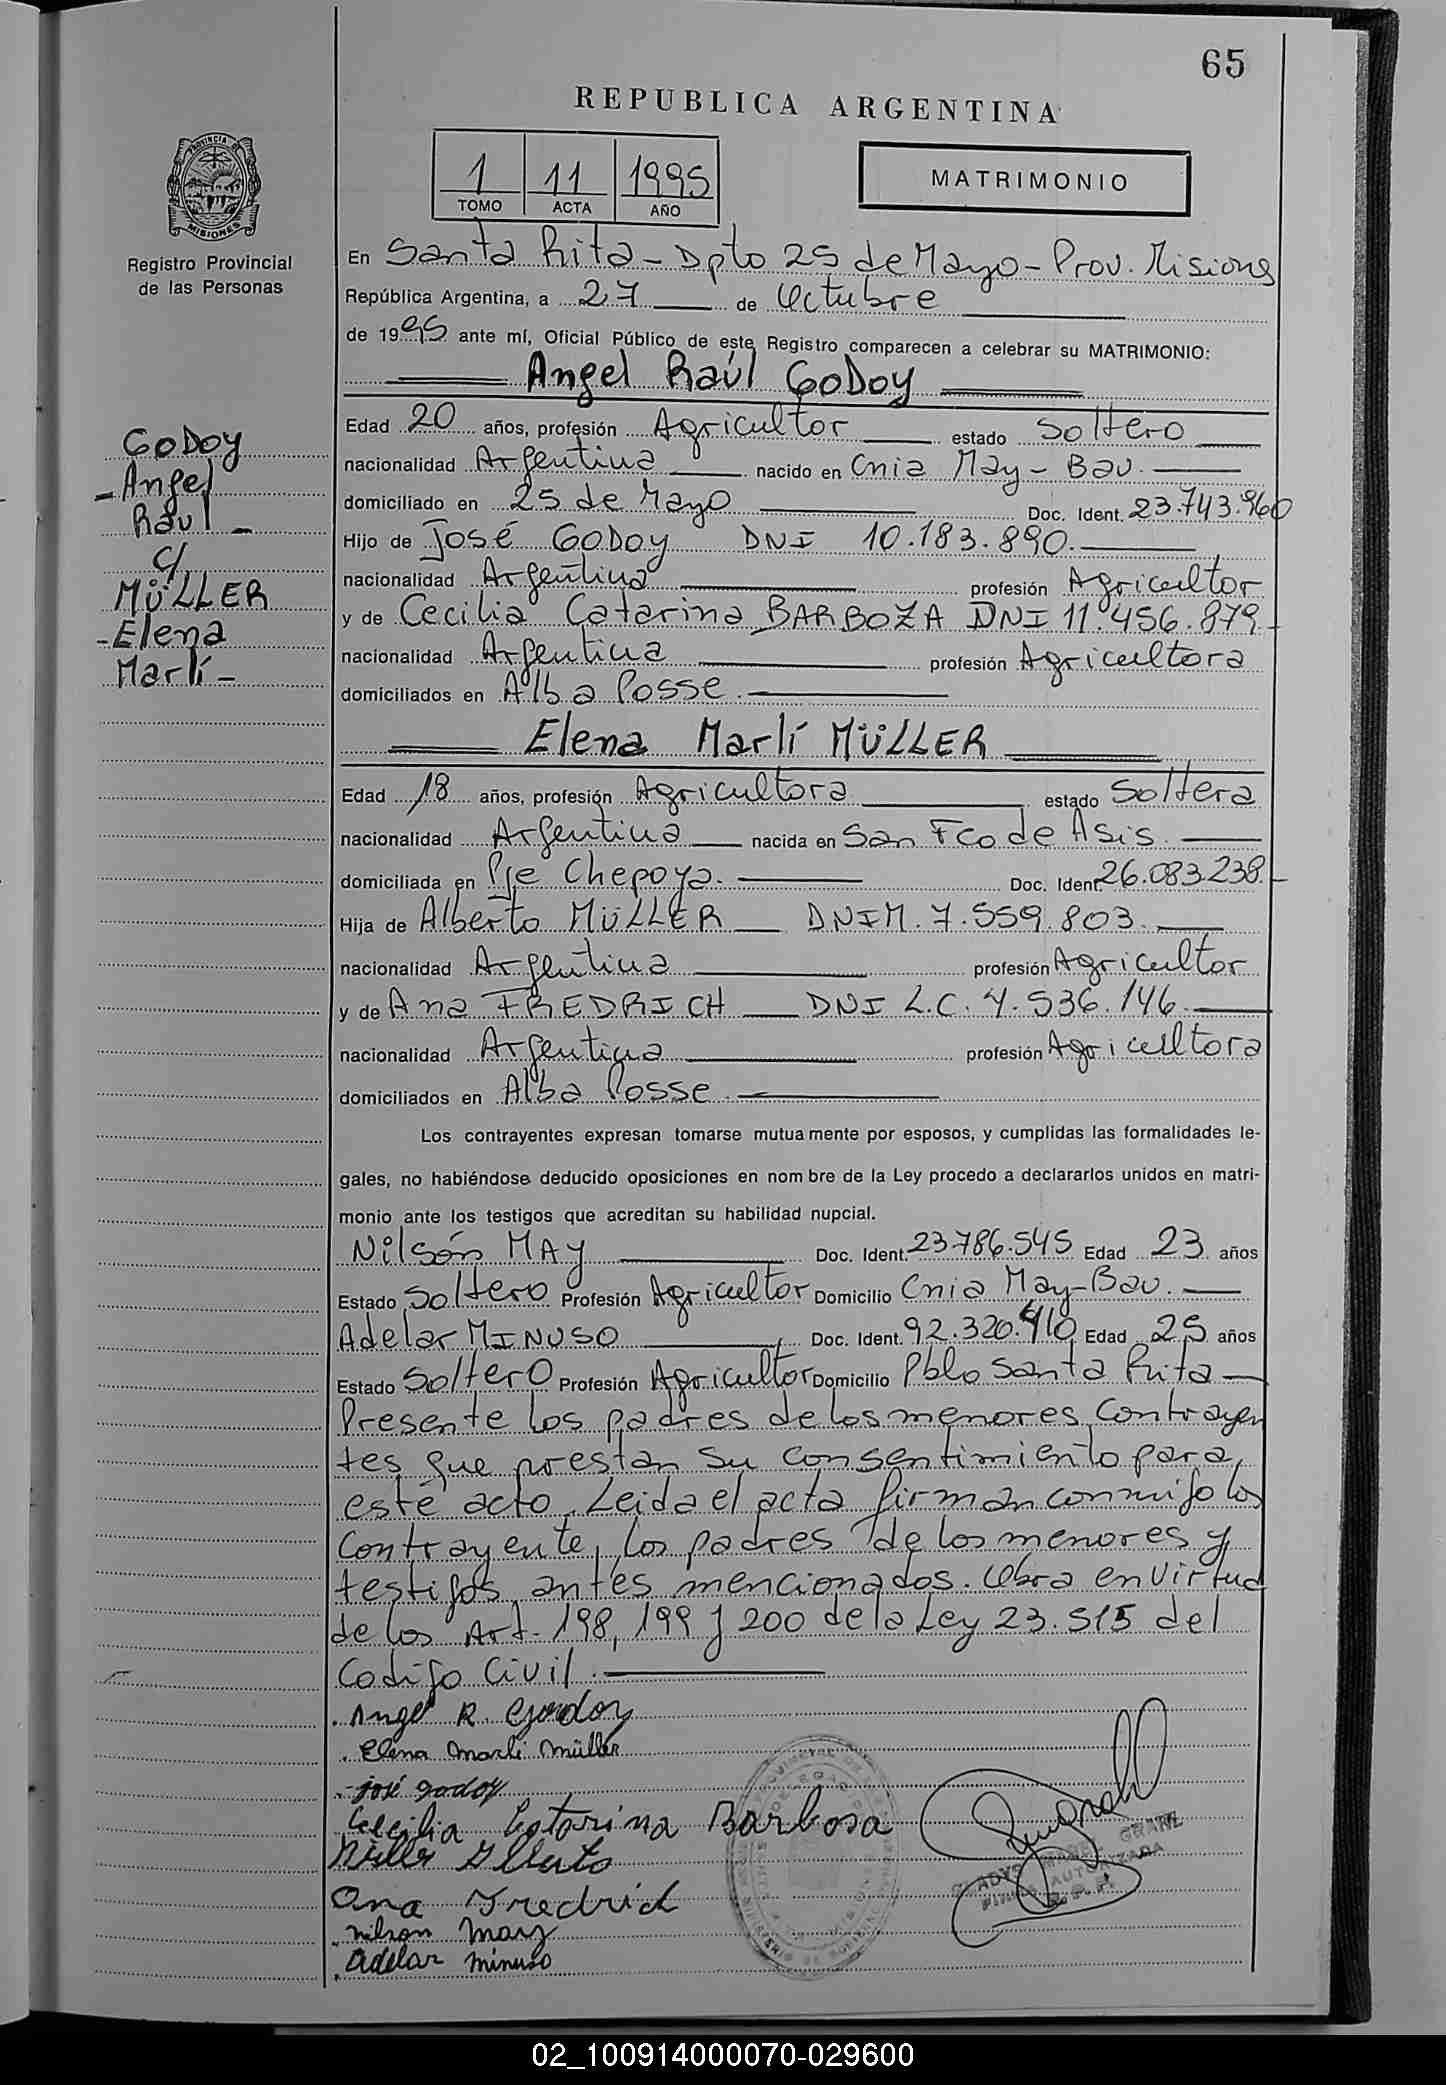 65
REPUBLICA ARGENTINA
1 11 1995
TOMO ACTA AÑO
MATRIMONIO
PROVINCIA DE
MISIONES
Registro Provincial
de las Personas
En Santa Rita - Dpto 25 de Mayo - Prov. Misiones
República Argentina, a 27 de Octubre
de 1995 ante mí, Oficial Público de este Registro comparecen a celebrar su MATRIMONIO:
Angel Raúl GODOY
Edad 20 años, profesión Agricultor estado Soltero
nacionalidad Argentina nacido en Cnia May - Bav.
domiciliado en 25 de Mayo Doc. Ident. 23.743.960
Hijo de José GODOY DNI 10.183.890.
nacionalidad Argentina profesión Agricultor
y de Cecilia Catarina BARBOZA DNI 11.456.879.-
nacionalidad Argentina profesión Agricultora
domiciliados en Alba Posse.
GODOY
- Angel
Raúl -
c/
MÜLLER
- Elena
Marlí -
Elena Marlí MÜLLER
Edad 18 años, profesión Agricultora estado Soltera
nacionalidad Argentina nacida en San Fco de Asis.
domiciliada en Pje Chepoya. Doc. Ident. 26.083.238.-
Hija de Alberto MÜLLER DNIM. 7.559.803.
nacionalidad Argentina profesión Agricultor
y de Ana FREDRICH DNI L.C. 4.536.146.
nacionalidad Argentina profesión Agricultora
domiciliados en Alba Posse.
Los contrayentes expresan tomarse mutuamente por esposos, y cumplidas las formalidades le-
gales, no habiéndose deducido oposiciones en nombre de la Ley procedo a declararlos unidos en matri-
monio ante los testigos que acreditan su habilidad nupcial.
Nilsón MAY Doc. Ident. 23.786.545 Edad 23 años
Estado Soltero Profesión Agricultor Domicilio Cnia May-Bav.
Adelar MINUSO Doc. Ident. 92.320.410 Edad 25 años
Estado Soltero Profesión Agricultor Domicilio Pblo Santa Rita
Presente los padres de los menores contrayen
tes que prestan su consentimiento para
este acto. Leida el acta firman conmigo los
contrayente, los padres de los menores y
testigos antes mencionados. Obra en virtud
de los Art. 198, 199 y 200 de la Ley 23.515 del
Codigo Civil.
Angel R. Godoy
Elena Marli Müller
josé godoy
Cecilia Catarina Barbosa
Müller Alberto
Ana Fredrich
nilson May
adelar minuso
GLADYS MABEL
FIRMA AUTORIZADA
R.P.P.
02_100914000070-029600